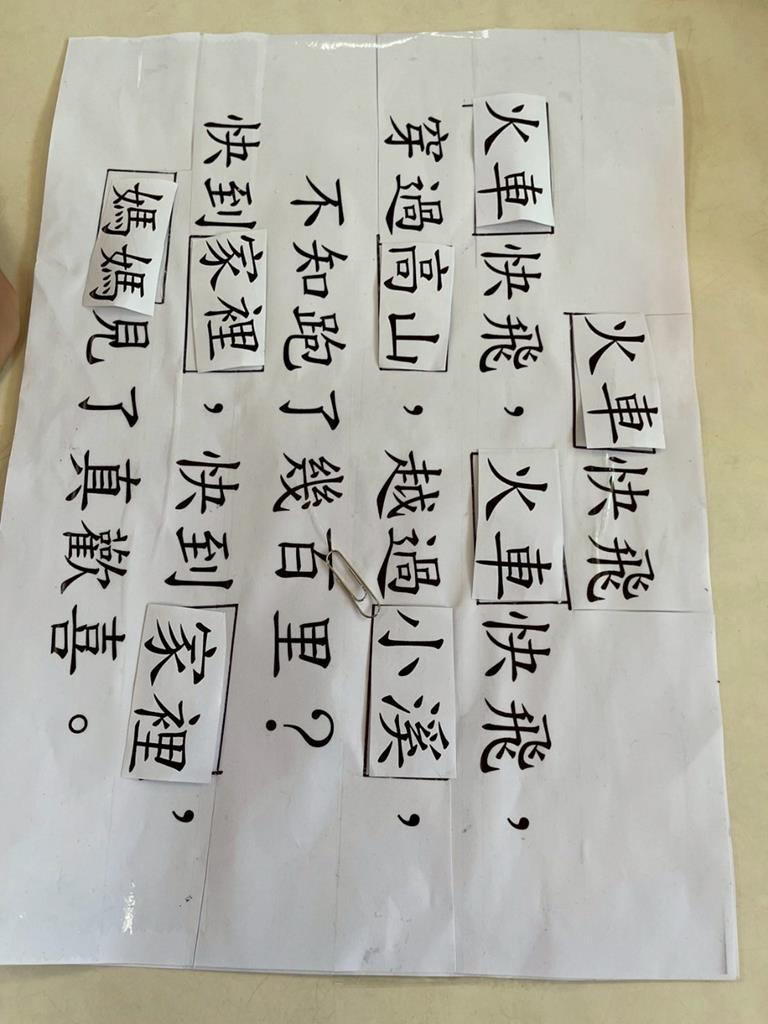 火車快飛
火車快飛，火車快飛，
穿過高山，越過小溪，
不知跑了幾百里？
快到家裡，快到家裡，
媽媽見了真歡喜。